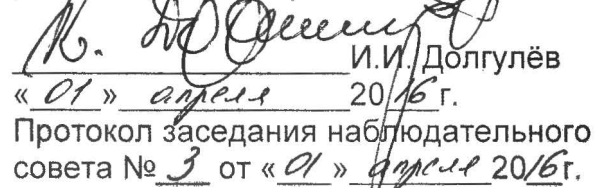 И.И. Долгулёв
« 01 » апреля 2016 г.
Протокол заседания наблюдательного
совета № 3 от « 01 » апреля 2016г.